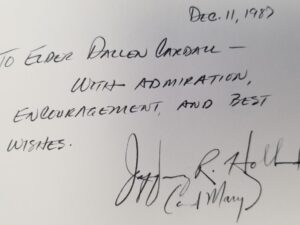 Dec. 11, 1987
TO ELDER DALLEN CARDALL —
WITH ADMIRATION,
ENCOURAGEMENT, AND BEST
WISHES.
Jeffrey R. Holl
(and Mary)